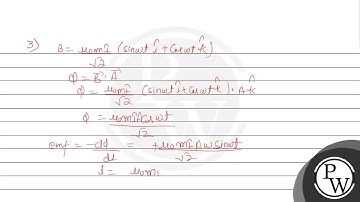 3) B = μ₀mI/√2 (sinωt î + cosωt k̂)
φ = B⃗ . A⃗
φ = μ₀mI/√2 (sinωt î + cosωt k̂) . A k̂
φ = μ₀mIA cosωt/√2
emf = -dφ/dt = + μ₀mI A ω sinωt/√2
i = μ₀m
PW